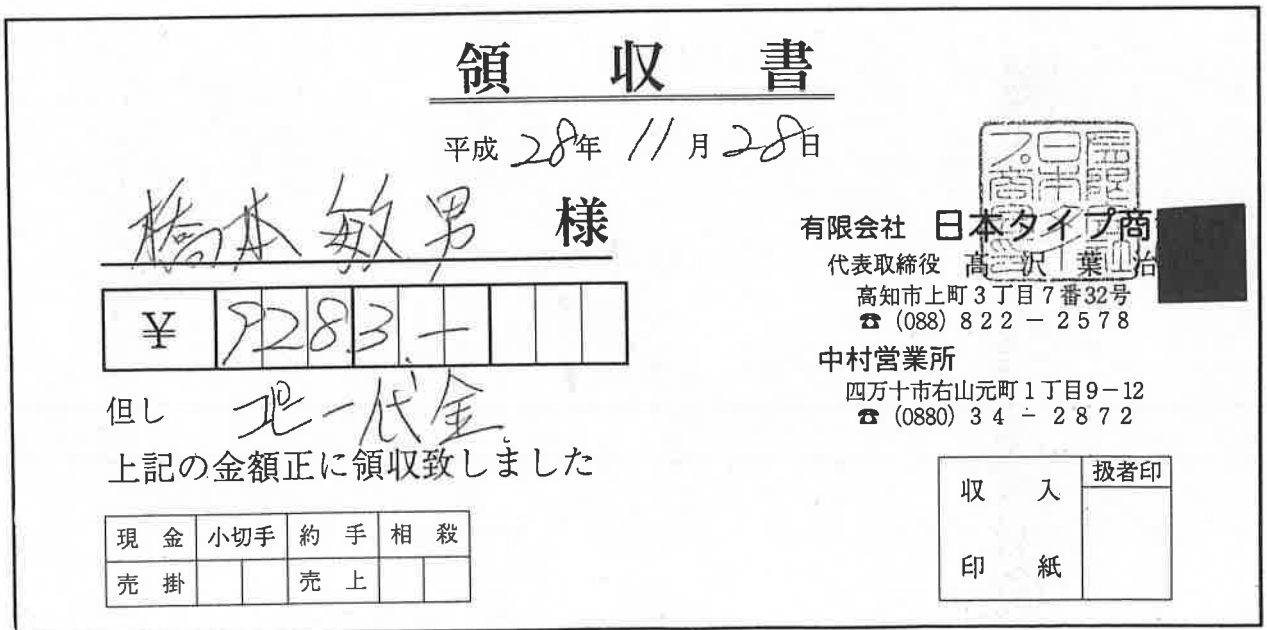 領収書
平成 28年 11月28日
橋本 敏男 様
¥ 9283.-
但し コピー代金
上記の金額正に領収致しました
現金 小切手 約手 相殺
売掛 売上
有限会社 日本タイプ商
代表取締役 高沢葉治
高知市上町3丁目7番32号
☎ (088) 822-2578
中村営業所
四万十市右山元町1丁目9-12
☎ (0880) 34-2872
収入印紙
扱者印